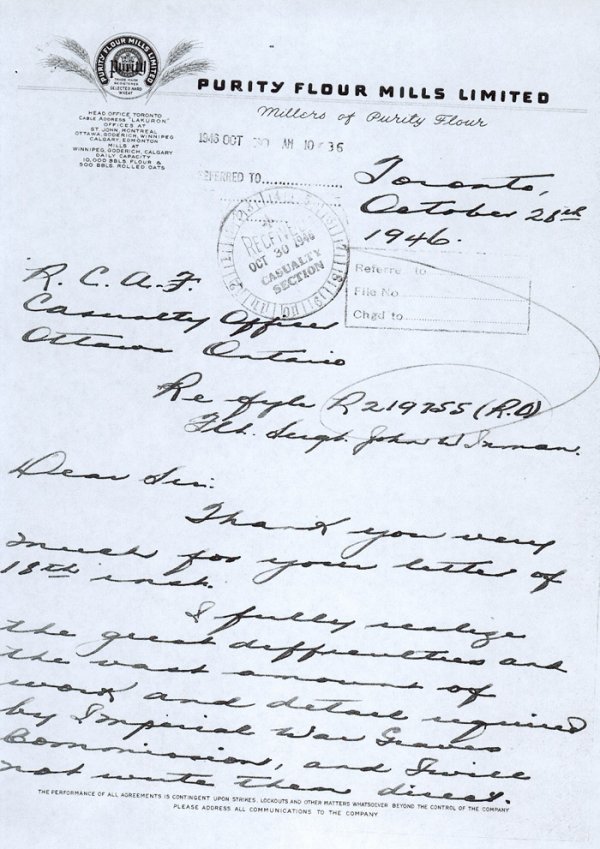 PURITY FLOUR MILLS LIMITED
PURITY
SELECTED HARD
WHEAT
PURITY FLOUR MILLS LIMITED
Millers of Purity Flour
HEAD OFFICE TORONTO
CABLE ADDRESS "LAKURON"
OFFICES AT
ST. JOHN, MONTREAL
OTTAWA, GODERICH, WINNIPEG
CALGARY, EDMONTON
MILLS AT
WINNIPEG, GODERICH, CALGARY
DAILY CAPACITY
10,000 BBLS. FLOUR &
500 BBLS. ROLLED OATS
1946 OCT 30 AM 10 36
REFERRED TO
RECEIVED
OCT 30 1946
CASUALTY
SECTION
Toronto,
October 28th
1946.
Referre to
File No
Chgd to
R. C. A. F.
Casualty Officer
Ottawa Ontario
Re fyle R219755 (R.O)
Flt. Sergt. John W. Inman.
Dear Sir:
Thank you very
much for your letter of
18th inst.
I fully realize
the great difficulties and
the vast amount of
work and detail required
by Imperial War Graves
Commission, and I will
not write them direct.
THE PERFORMANCE OF ALL AGREEMENTS IS CONTINGENT UPON STRIKES, LOCKOUTS AND OTHER MATTERS WHATSOEVER BEYOND THE CONTROL OF THE COMPANY
PLEASE ADDRESS ALL COMMUNICATIONS TO THE COMPANY